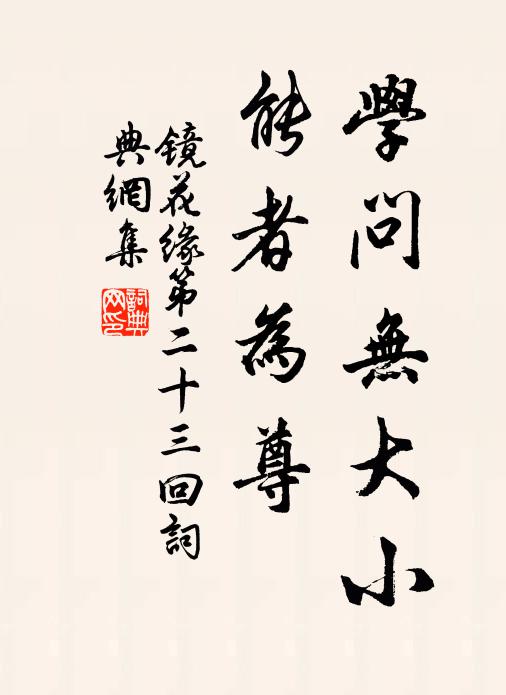 學問無大小
能者為尊
鏡花緣第二十三回詞
典網集
詞典
网印